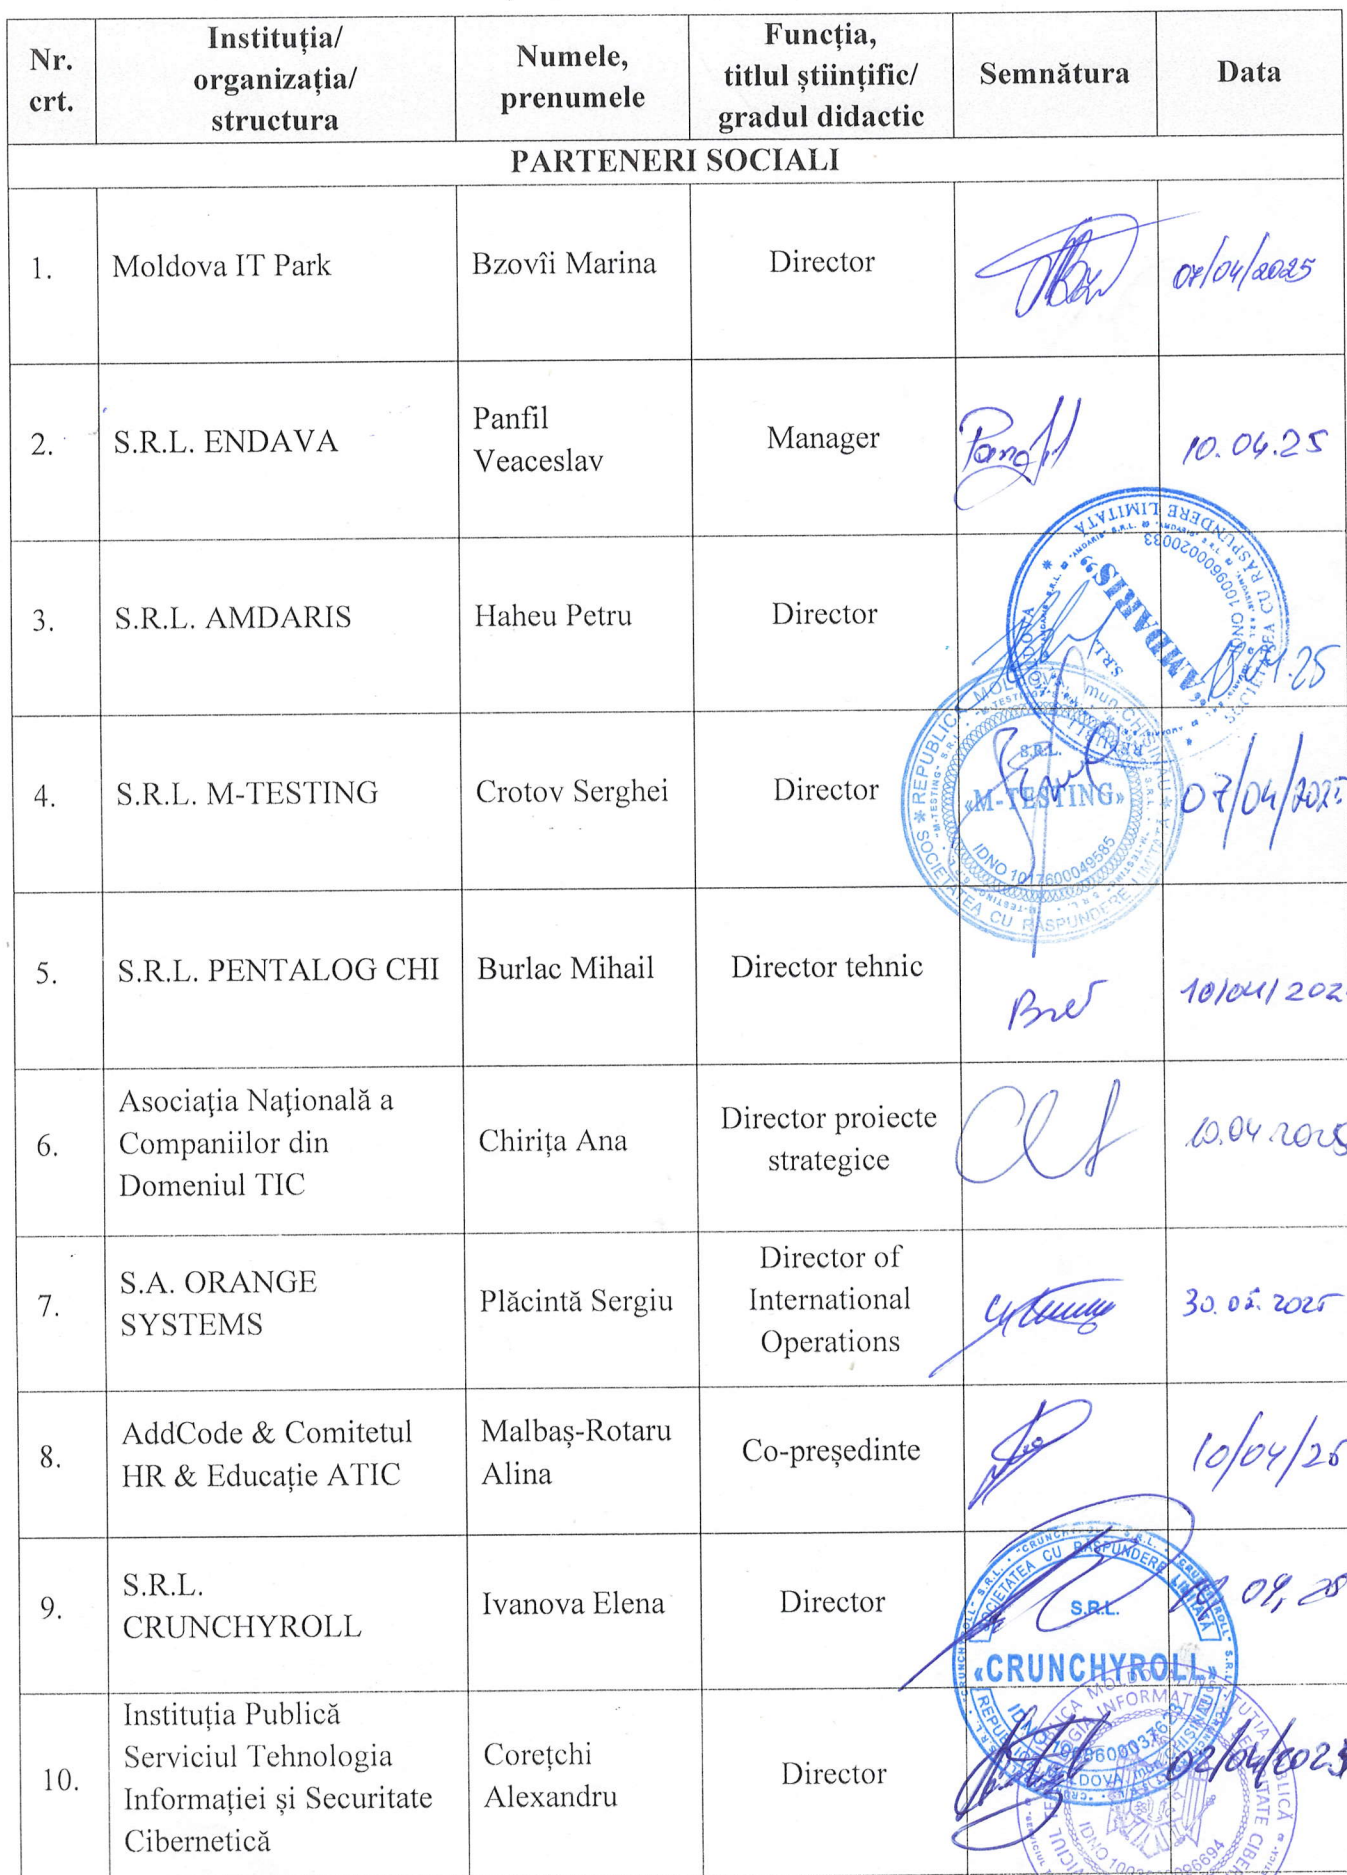 Nr. crt.
Instituția/ organizația/ structura
Numele, prenumele
Funcția, titlul științific/ gradul didactic
Semnătura
Data
PARTENERI SOCIALI
1.
Moldova IT Park
Bzovîi Marina
Director
07/04/2025
2.
S.R.L. ENDAVA
Panfil
Veaceslav
Manager
10.04.25
3.
S.R.L. AMDARIS
Haheu Petru
Director
SOCIETATEA CU RĂSPUNDERE LIMITATĂ
IDNO 1009600020033
S.R.L.
„AMDARIS”
4.
S.R.L. M-TESTING
Crotov Serghei
Director
07/04/202
REPUBLICA MOLDOVA mun CHIȘINĂU
SOCIETATEA CU RĂSPUNDERE LIMITATĂ
S.R.L.
«M-TESTING»
IDNO 1017600049585
5.
S.R.L. PENTALOG CHI
Burlac Mihail
Director tehnic
10/04/202
6.
Asociaţia Naţională a
Companiilor din
Domeniul TIC
Chirița Ana
Director proiecte
strategice
10.04.2025
7.
S.A. ORANGE
SYSTEMS
Plăcintă Sergiu
Director of
International
Operations
2025
8.
AddCode & Comitetul
HR & Educație ATIC
Malbaș-Rotaru
Alina
Co-președinte
10/04/25
9.
S.R.L.
CRUNCHYROLL
Ivanova Elena
Director
SOCIETATEA CU RĂSPUNDERE LIMITATĂ
S.R.L.
«CRUNCHYROLL»
10.
Instituția Publică
Serviciul Tehnologia
Informației și Securitate
Cibernetică
Corețchi
Alexandru
Director